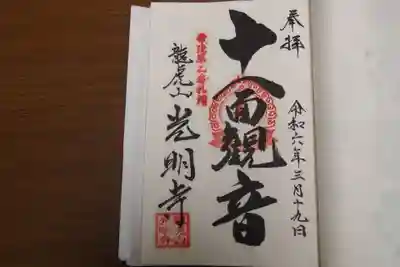 奉拝
令和六年三月十九日
十一面観音
龍虎山光明寺